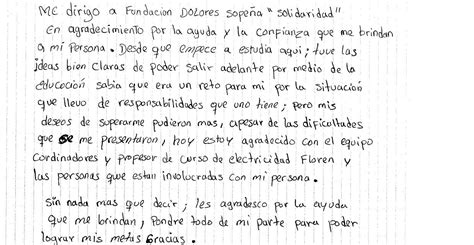 ME dirigo a Fundacion DOLORES sopeña "solidaridad"
En agradecimiento por la ayuda y la confianza que me brindan
a mi persona. Desde que empece a estudia aqui; tuve las
ideas bien claras de poder salir adelante por medio de la
educación sabia que era un reto para mi por la situación
que llevo de responsabilidades que uno tiene; pero mis
deseos de superarme pudieron mas, apesar de las dificultades
que se me presentaron, hoy estoy agradecido con el equipo
Cordinadores y profesor de curso de electricidad Floren y
las personas que estan involucradas con mi persona.
Sin nada mas que decir; les agradesco por la ayuda
que me brindan, Pondre todo de mi parte para poder
lograr mis metas Gracias.